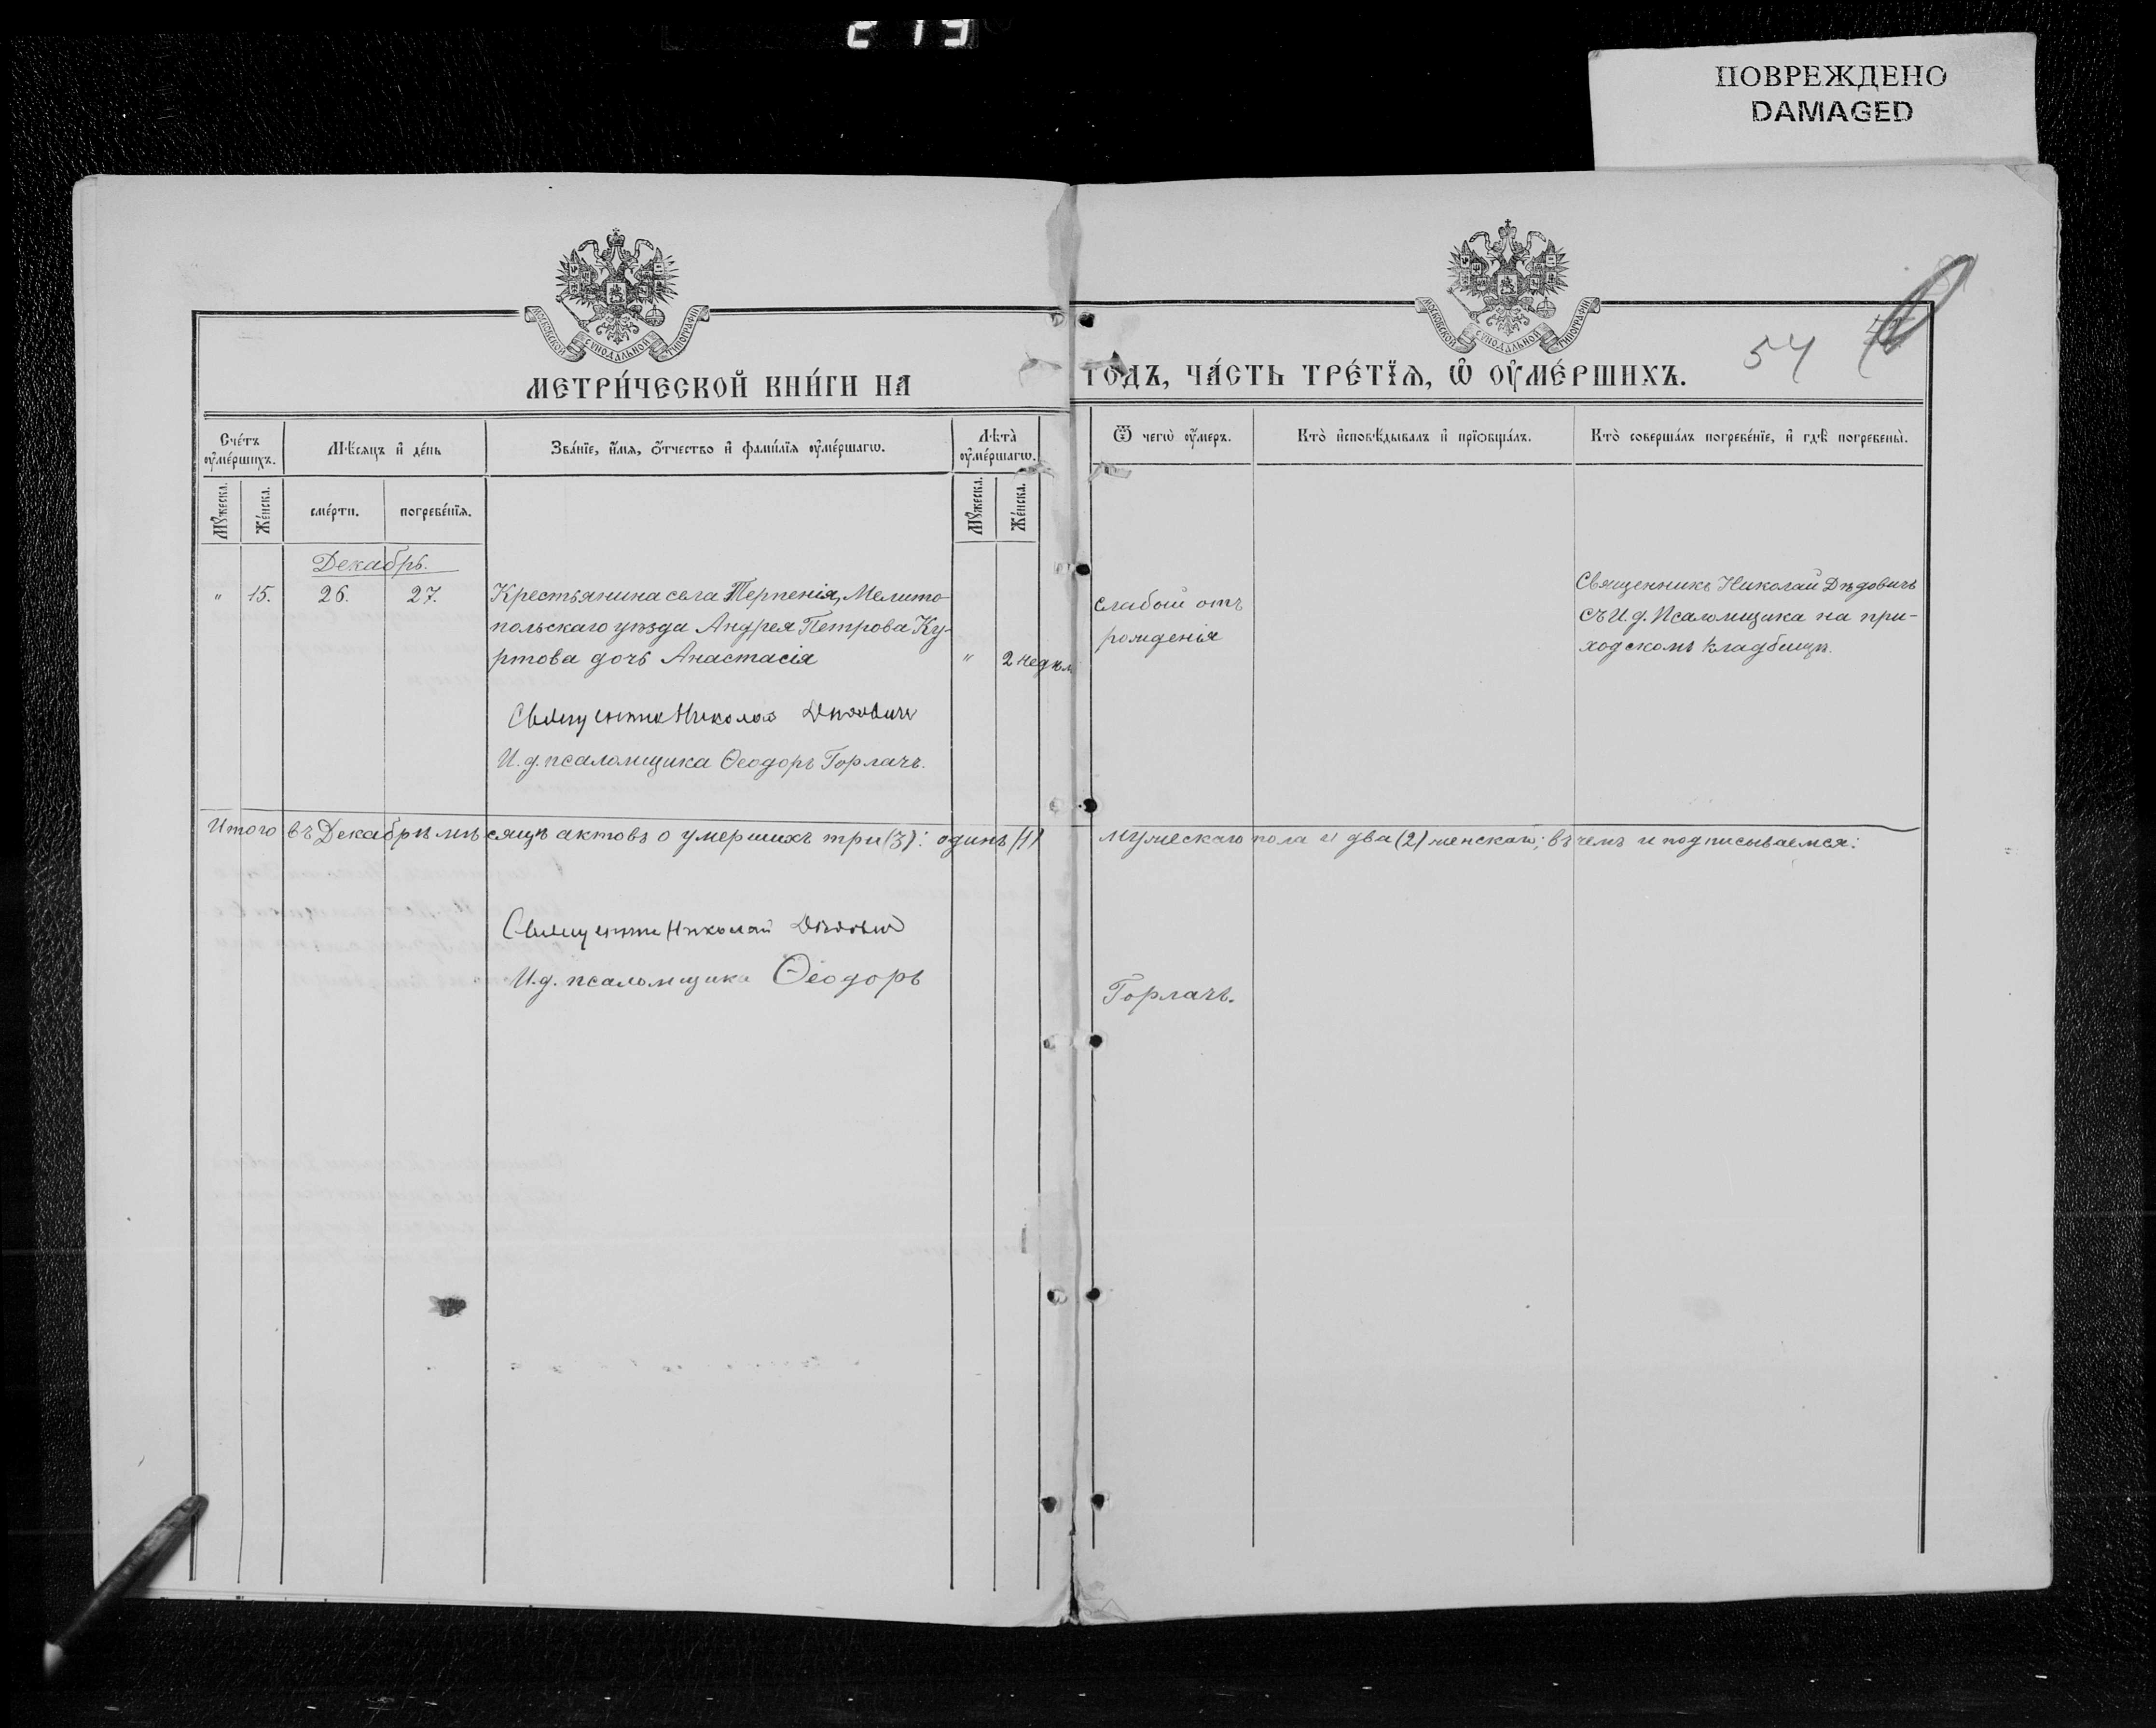 219
ПОВРЕЖДЕНО
DAMAGED
МОСКОВСКОЙ СѴНОДАЛЬНОЙ ТИПОГРАФІИ
МОСКОВСКОЙ СѴНОДАЛЬНОЙ ТИПОГРАФІИ
54
МЕТРИ́ЧЕСКОЙ КНИ́ГИ НА
ГО́ДЪ, ЧА́СТЬ ТРЕ́ТЇѦ, Ѡ҆ ОУ҆МЕ́РШИХЪ.
Сче́тъ оу҆ме́ршихъ.
Мѣсяцъ и҆ де́нь
Зва́нїе, и҆́мя, о҆́тчество и҆ фами́лїя оу҆ме́ршагѡ.
Лѣта̀ оу҆ме́ршагѡ.
Ѿ чегѡ̀ оу҆́меръ.
Кто̀ и҆сповѣ́дывалъ и҆ прїѡбща́лъ.
Кто̀ соверша́лъ погребе́нїе, и҆ гдѣ̀ погребены̀.
Мꙋ́жеска.
Же́нска.
сме́рти.
погребе́нїя.
Мꙋ́жеска.
Же́нска.
Декабрь.
" 15. 26. 27. Крестьянина села Терпенія, Мелито-
польскаго уѣзда Андрея Петрова Ку-
ртова дочь Анастасія " 2 недѣл
слабой отъ
рожденія
Священникъ Николай Дѣдовичъ
съ И. д. Псаломщика на при-
ходскомъ кладбищѣ.
Священникъ Николай Дѣдовичъ
И. д. псаломщика Ѳеодоръ Горлачъ.
Итого въ Декабрѣ мѣсяцѣ актовъ о умершихъ три (3): одинъ (1) мужескаго пола и два (2) женскаго; въ чемъ и подписываемся:
Священникъ Николай Дѣдовичъ
И. д. псаломщика Ѳеодоръ Горлачъ.